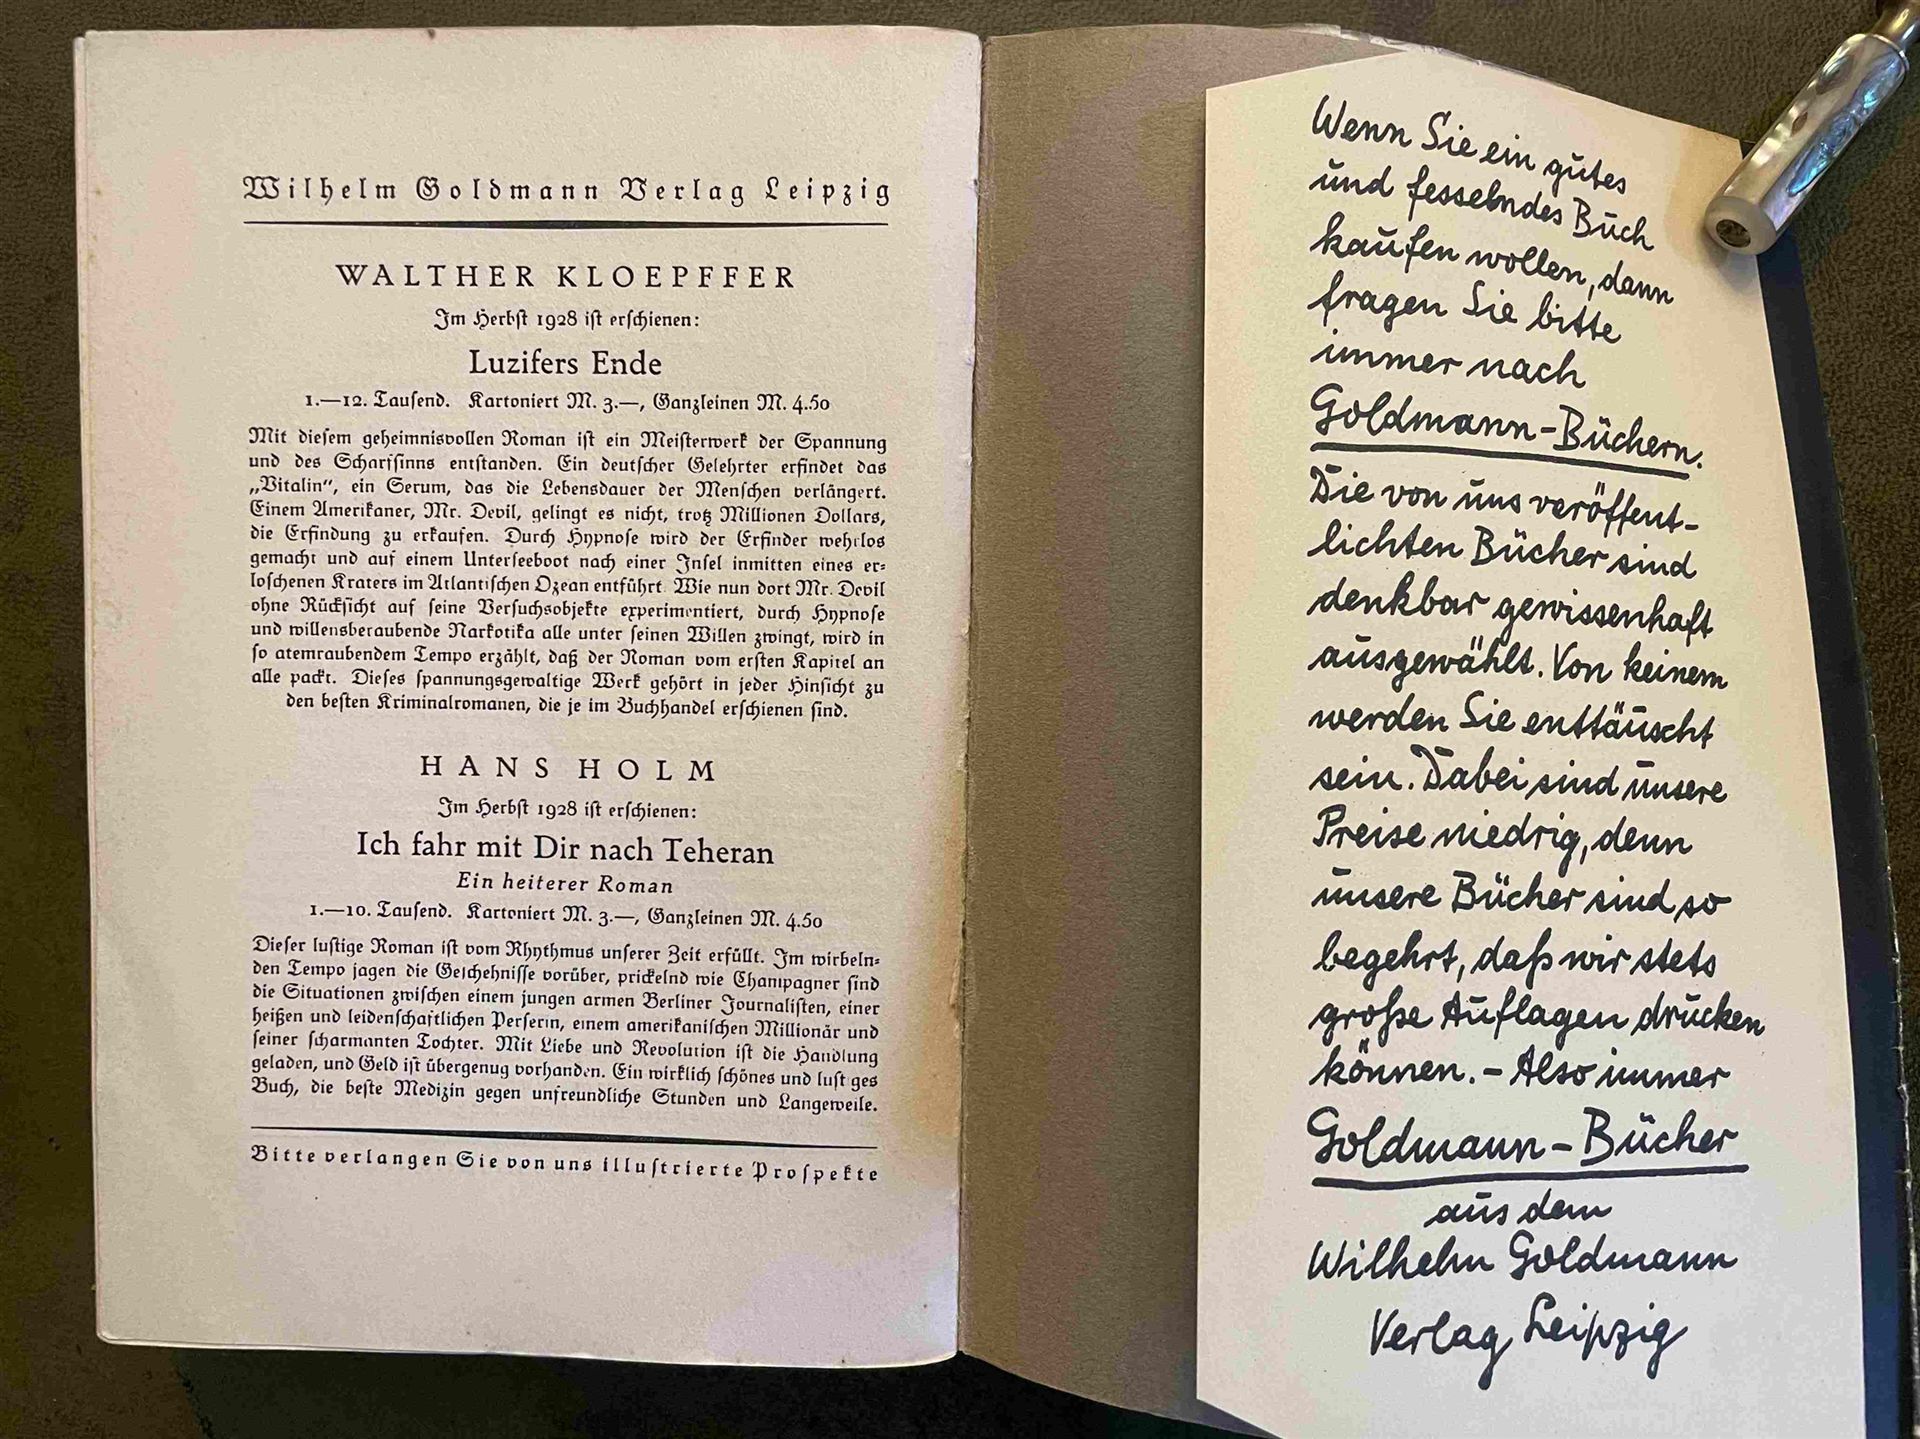 Wilhelm Goldmann Verlag Leipzig
WALTHER KLOEPFFER
Im Herbst 1928 ist erschienen:
Luzifers Ende
1.—12. Tausend. Kartoniert M. 3.—, Ganzleinen M. 4.50
Mit diesem geheimnisvollen Roman ist ein Meisterwerk der Spannung
und des Scharfsinns entstanden. Ein deutscher Gelehrter erfindet das
„Vitalin“, ein Serum, das die Lebensdauer der Menschen verlängert.
Einem Amerikaner, Mr. Devil, gelingt es nicht, trotz Millionen Dollars,
die Erfindung zu erkaufen. Durch Hypnose wird der Erfinder wehrlos
gemacht und auf einem Unterseeboot nach einer Insel inmitten eines er-
loschenen Kraters im Atlantischen Ozean entführt. Wie nun dort Mr. Devil
ohne Rücksicht auf seine Versuchsobjekte experimentiert, durch Hypnose
und willensberaubende Narkotika alle unter seinen Willen zwingt, wird in
so atemraubendem Tempo erzählt, daß der Roman vom ersten Kapitel an
alle packt. Dieses spannungsgewaltige Werk gehört in jeder Hinsicht zu
den besten Kriminalromanen, die je im Buchhandel erschienen sind.
HANS HOLM
Im Herbst 1928 ist erschienen:
Ich fahr mit Dir nach Teheran
Ein heiterer Roman
1.—10. Tausend. Kartoniert M. 3.—, Ganzleinen M. 4.50
Dieser lustige Roman ist vom Rhythmus unserer Zeit erfüllt. Im wirbeln-
den Tempo jagen die Geschehnisse vorüber, prickelnd wie Champagner sind
die Situationen zwischen einem jungen armen Berliner Journalisten, einer
heißen und leidenschaftlichen Perserin, einem amerikanischen Millionär und
seiner scharmanten Tochter. Mit Liebe und Revolution ist die Handlung
geladen, und Geld ist übergenug vorhanden. Ein wirklich schönes und lust ges
Buch, die beste Medizin gegen unfreundliche Stunden und Langeweile.
Bitte verlangen Sie von uns illustrierte Prospekte
Wenn Sie ein gutes
und fesselndes Buch
kaufen wollen, dann
fragen Sie bitte
immer nach
Goldmann-Büchern.
Die von uns veröffent-
lichten Bücher sind
denkbar gewissenhaft
ausgewählt. Von keinem
werden Sie enttäuscht
sein. Dabei sind unsere
Preise niedrig, denn
unsere Bücher sind so
begehrt, daß wir stets
große Auflagen drucken
können. – Also immer
Goldmann-Bücher
aus dem
Wilhelm Goldmann
Verlag Leipzig